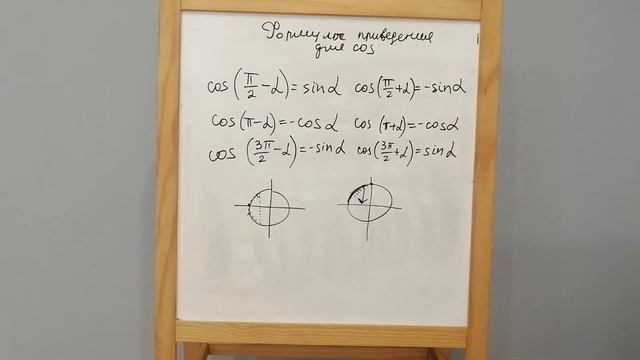 Формулы приведения
для cos
cos(π/2-α)=sinα cos(π/2+α)=-sinα
cos(π-α)=-cosα cos(π+α)=-cosα
cos(3π/2-α)=-sinα cos(3π/2+α)=sinα